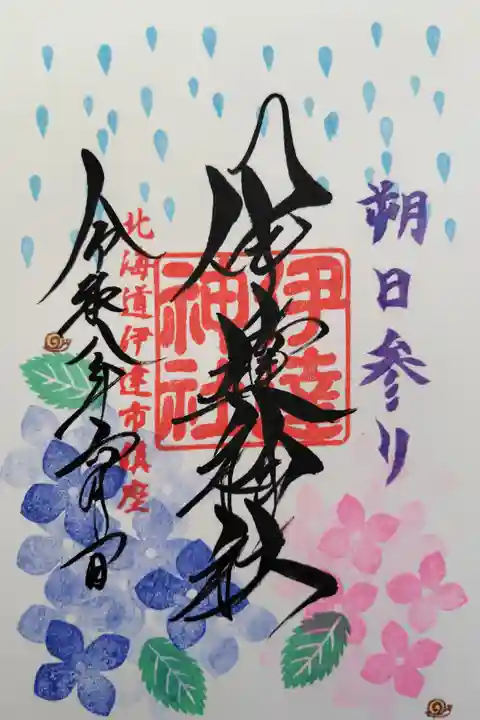 朔日参り
伊達神社
伊達神社
北海道伊達市鎮座
令和八年六月一日